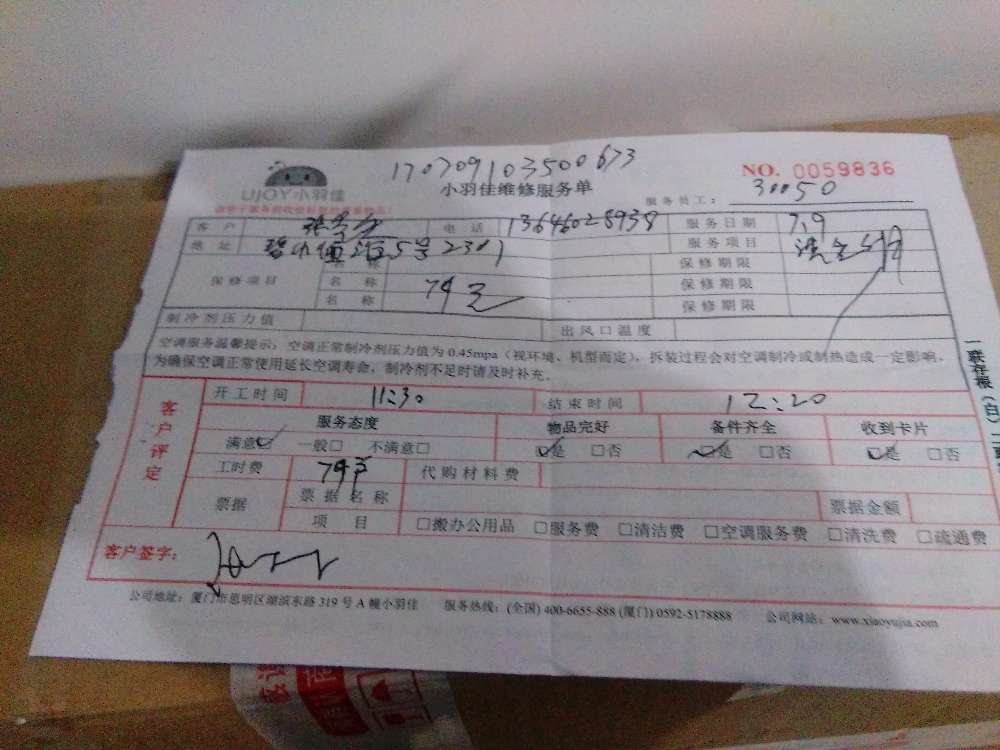 170709103500673
UJOY小羽佳
小羽佳维修服务单
NO. 0059836
服务员工: 30050
客户 电话 13646028938 服务日期 7.9
地址 5号2301 服务项目
保修项目 名称 保修期限
名称 79元 保修期限
名称 保修期限
制冷剂压力值 出风口温度
空调服务温馨提示:空调正常制冷剂压力值为0.45mpa(视环境、机型而定),拆装过程会对空调制冷或制热造成一定影响,
为确保空调正常使用延长空调寿命,制冷剂不足时请及时补充。
一联存根(白)
客户评定
开工时间 11:30 结束时间 12:20
服务态度 物品完好 备件齐全 收到卡片
满意☑ 一般□ 不满意□ ☑是 □否 ☑是 □否 ☑是 □否
工时费 79 代购材料费
票据 票据名称 票据金额
项目 □搬办公用品 □服务费 □清洁费 □空调服务费 □清洗费 □疏通费
客户签字:
公司地址:厦门市思明区湖滨东路319号A幢小羽佳 服务热线:(全国)400-6655-888(厦门)0592-5178888 公司网站:www.xiaoyujia.com